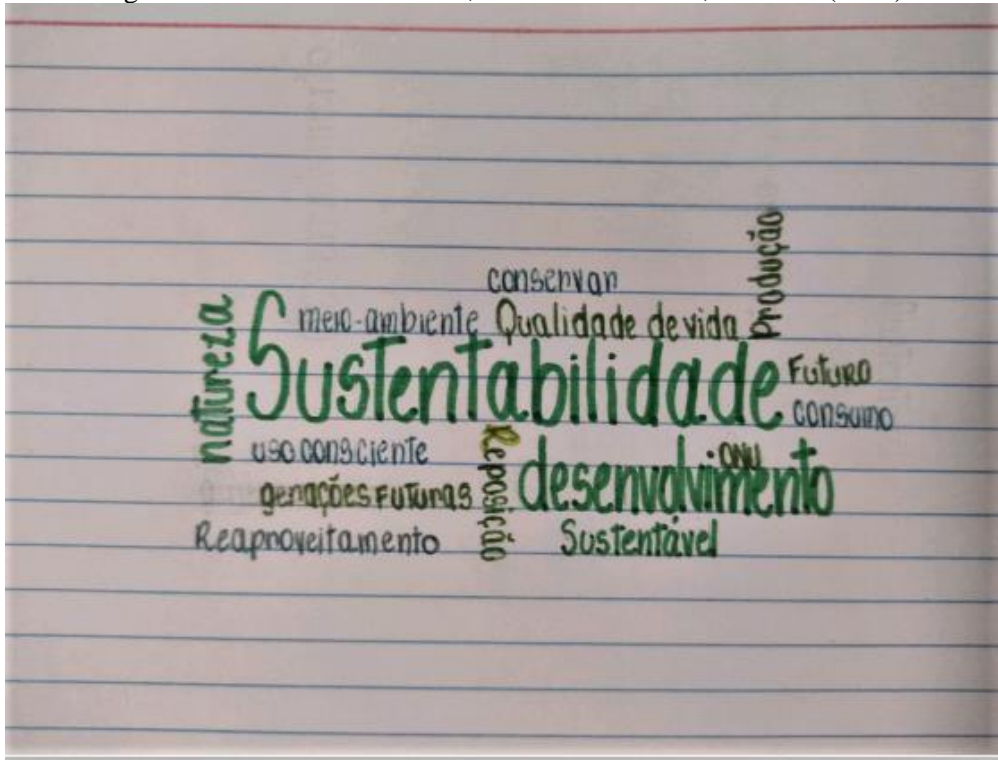 Produção
conservar
meio-ambiente Qualidade de vida
natureza
Sustentabilidade
Futuro
consumo
uso consciente
Reposição
ONU
desenvolvimento
gerações Futuras
Reaproveitamento
Sustentável